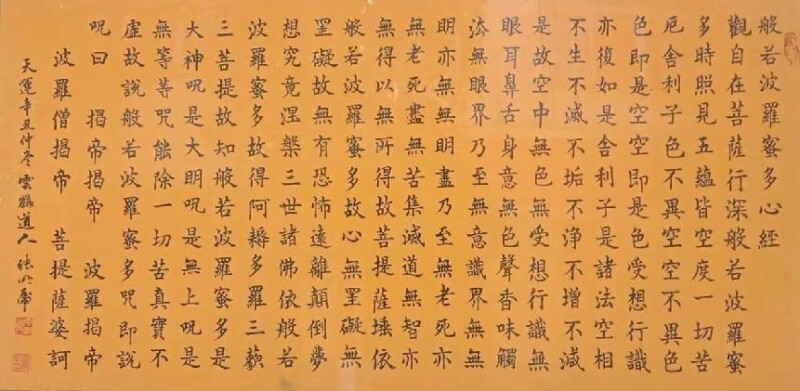 般若波羅蜜多心經
觀自在菩薩行深般若波羅蜜
多時照見五蘊皆空度一切苦
厄舍利子色不異空空不異色
色即是空空即是色受想行識
亦復如是舍利子是諸法空相
不生不滅不垢不淨不增不減
是故空中無色無受想行識無
眼耳鼻舌身意無色聲香味觸
法無眼界乃至無意識界無無
明亦無無明盡乃至無老死亦
無老死盡無苦集滅道無智亦
無得以無所得故菩提薩埵依
般若波羅蜜多故心無罣礙無
罣礙故無有恐怖遠離顛倒夢
想究竟涅槃三世諸佛依般若
波羅蜜多故得阿耨多羅三藐
三菩提故知般若波羅蜜多是
大神呪是大明呪是無上呪是
無等等咒能除一切苦真實不
虛故說般若波羅蜜多咒即說
呪曰 揭帝揭帝 波羅揭帝
波羅僧揭帝 菩提薩婆訶
天運辛丑仲冬 雲鶴道人 張